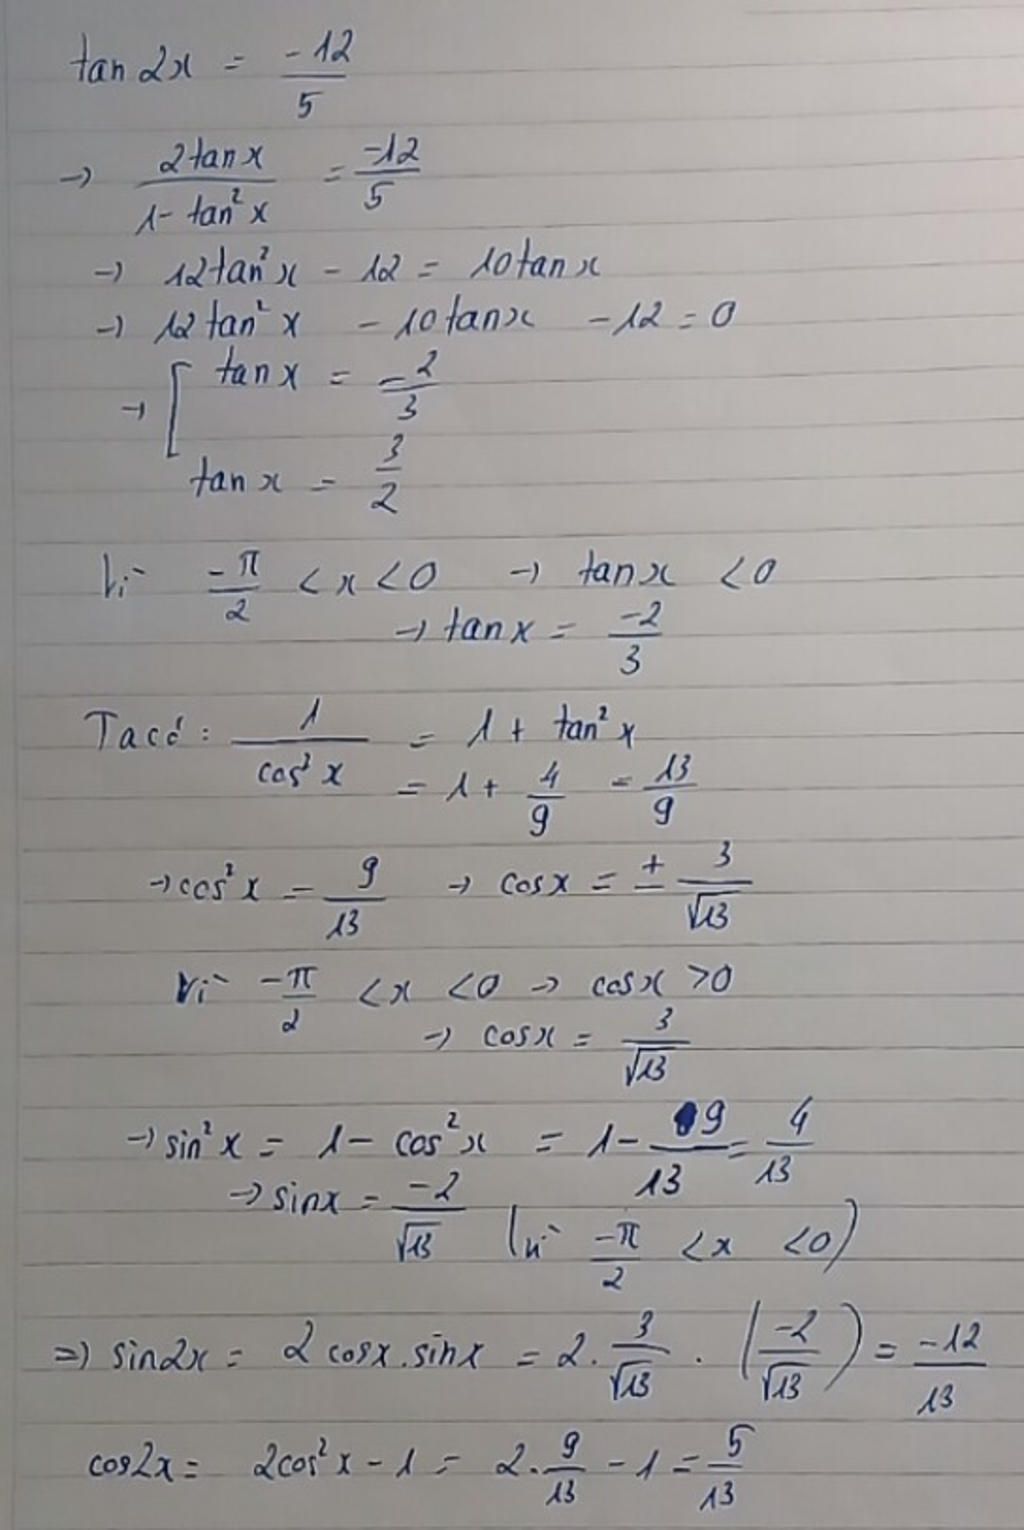 tan 2x = -12/5
→ 2tan x / 1 - tan²x = -12/5
→ 12tan²x - 12 = 10tan x
→ 12tan²x - 10tanx - 12 = 0
→ [ tan x = -2/3
tan x = 3/2
Vì -π/2 < x < 0 → tan x < 0
→ tan x = -2/3
Ta có: 1/cos²x = 1 + tan²x
= 1 + 4/9 = 13/9
→ cos²x = 9/13 → cosx = ± 3/√13
Vì -π/2 < x < 0 → cosx > 0
→ cosx = 3/√13
→ sin²x = 1 - cos²x = 1 - 9/13 = 4/13
→ sinx = -2/√13 (vì -π/2 < x < 0)
⇒ sin2x = 2 cosx.sinx = 2. 3/√13 . (-2/√13) = -12/13
cos2x = 2cos²x - 1 = 2. 9/13 - 1 = 5/13